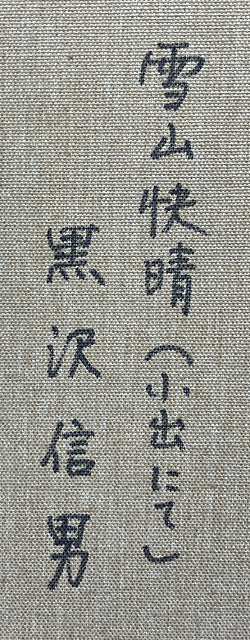 雪山快晴（小出にて）
黒沢信男